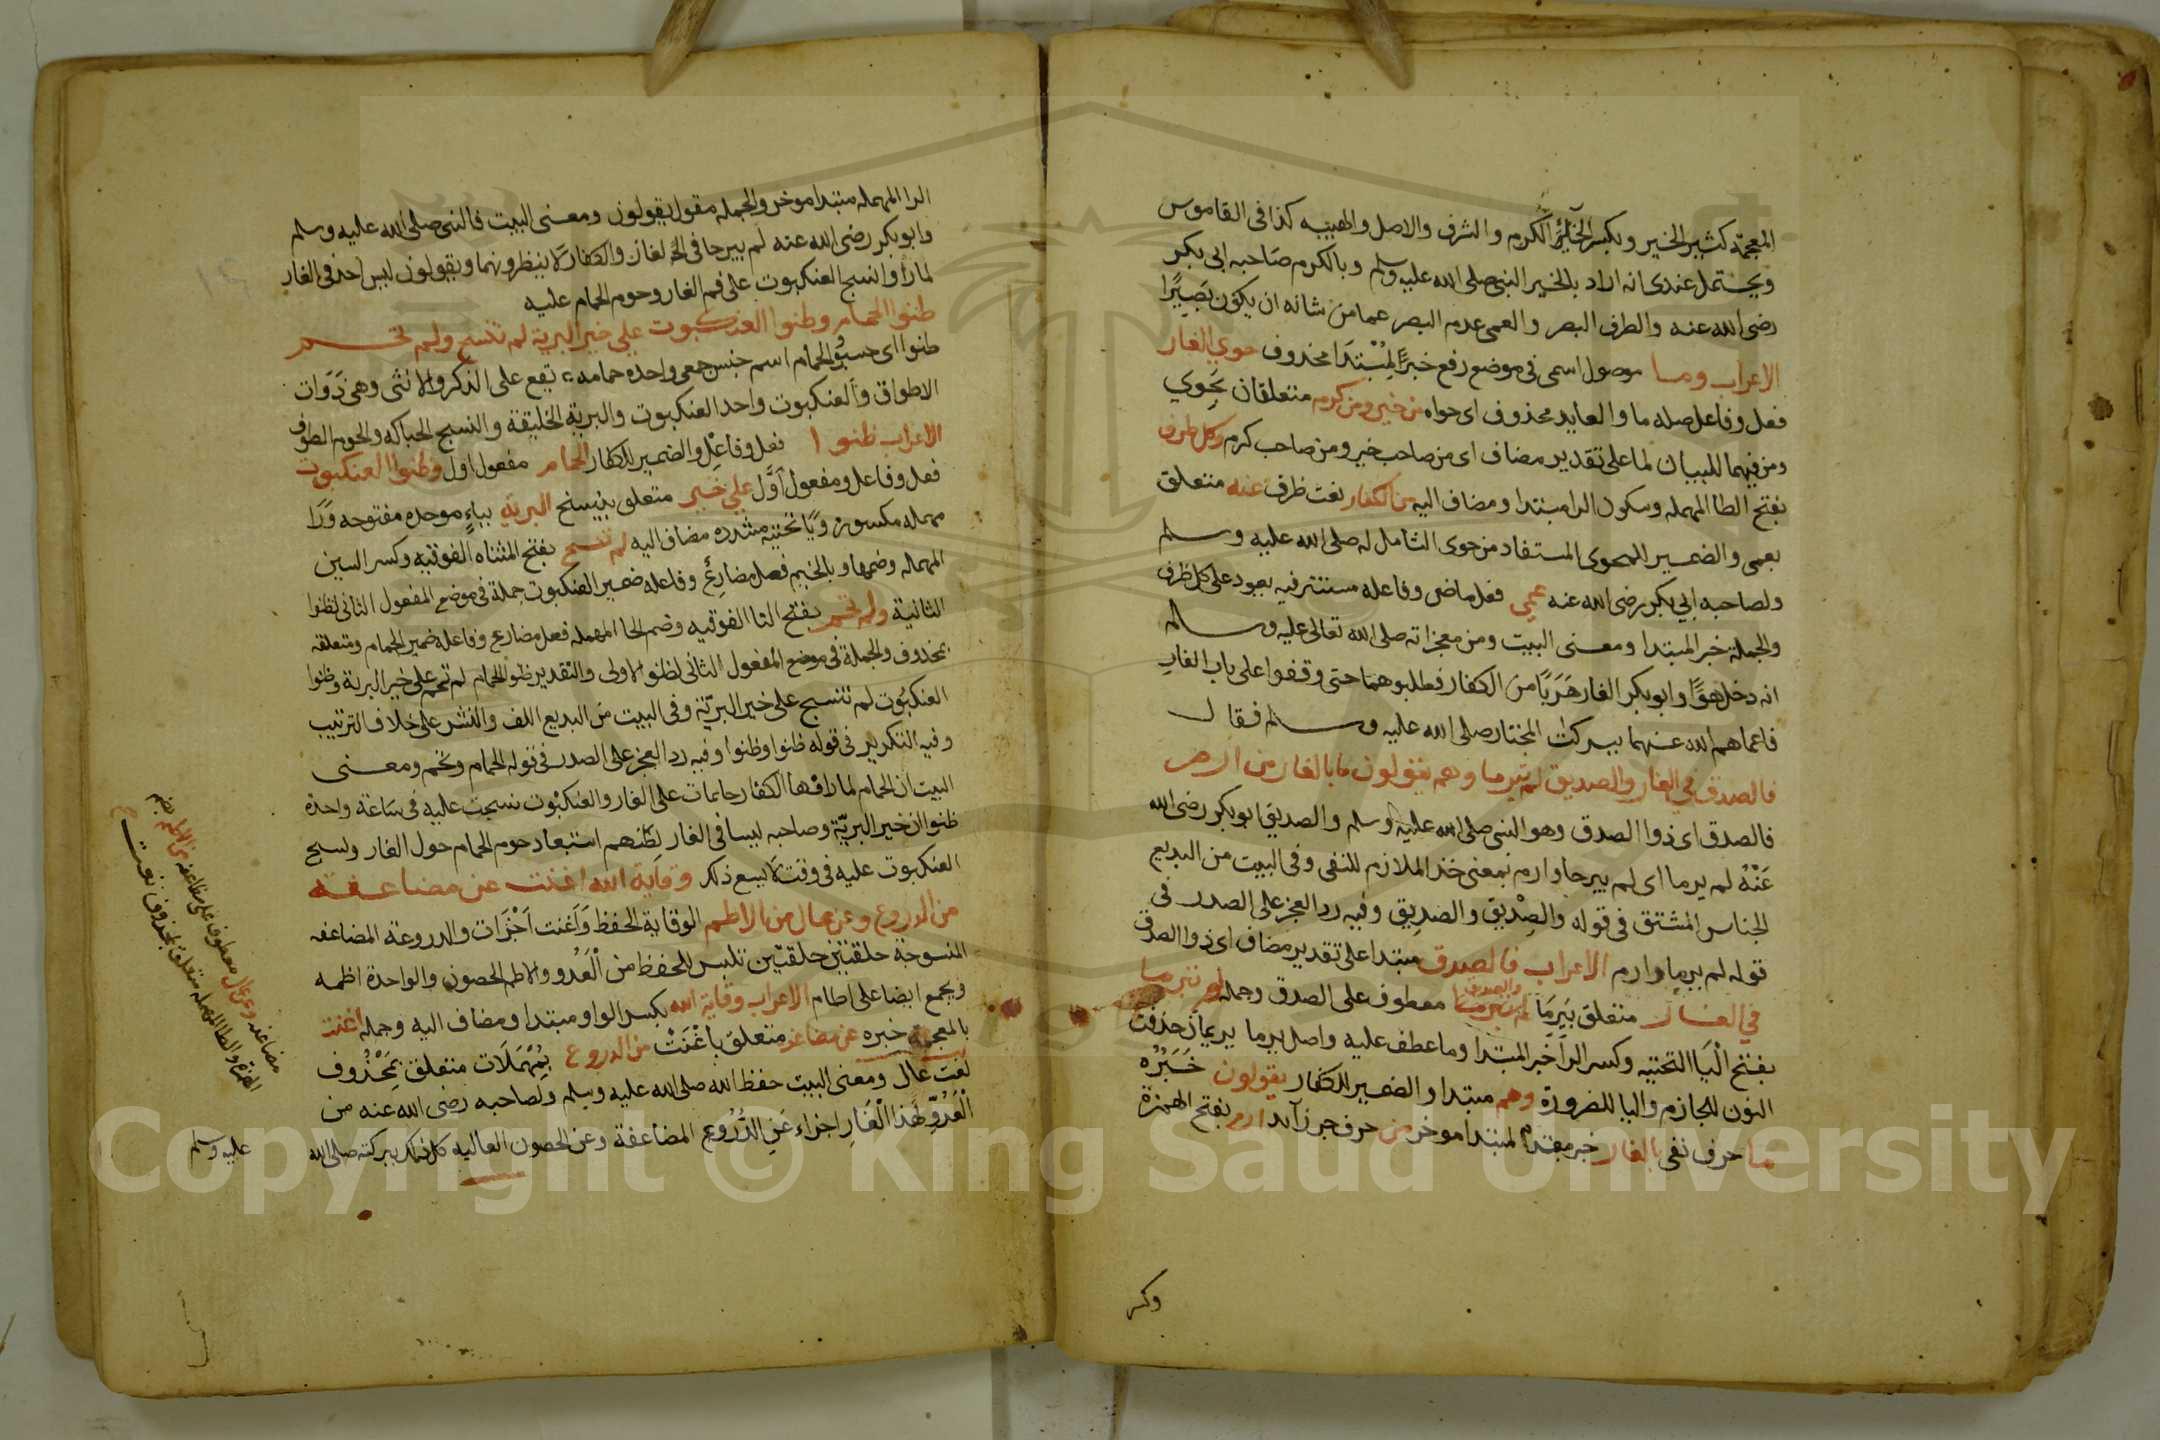 المعجمة كثير الخير وبكسر الخاء الكرم والشرف والاصل والهيبه كذا في القاموس
ويحتمل عندي انه اراد بالخير النبي صلى الله عليه وسلم وبالكرم صاحبه ابي بكر
رضي الله عنه والطرف البصر والعمى عدم البصر عما من شانه ان يكون بصيرا
الاعراب وما موصول اسمي في موضع رفع خبرا لمبتدا محذوف حوي الغار
فعل وفاعل صله ما والعايد محذوف اي حواه من خير ومن كرم متعلقان بحوي
ومن فيهما للبيان لما على تقدير مضاف اي من صاحب خير ومن صاحب كرم وكل طرف
بفتح الطا المهمله وسكون الرا مبتدا ومضاف اليه من الكفار نعت طرف عنه متعلق
بعمي والضمير للمحوى المستفاد من حوى الشامل له صلى الله عليه وسلم
ولصاحبه ابي بكر رضي الله عنه عمي فعل ماضي وفاعله مستتر فيه يعود على كل طرف
والجملة خبر المبتدا ومعنى البيت ومن معجزاته صلى الله تعالى عليه وسلم
انه دخل هو وابو بكر الغار هربا من الكفار فطلبوهما حتى وقفوا على باب الغار
فاعماهم الله عنهما ببركت المختار صلى الله عليه وسلم فقال
فالصدق في الغار والصديق لم يرما وهم يقولون ما بالغار من ارم
فالصدق اي ذوا الصدق وهو النبي صلى الله عليه وسلم والصديق ابو بكر رضي الله
عنه لم يرما اي لم يبرحا وارم بمعنى احد الملازم للنفي وفي البيت من البديع
الجناس المشتق في قوله والصديق والصديق وفيه رد العجز على الصدر في
قوله لم يرما وارم الاعراب فالصدق مبتدا على تقدير مضاف اي ذوا الصدق
في الغار متعلق بيرما والصدق معطوف على الصدق وجملة لم يرما
بفتح اليا التحتيه وكسر الرا خبر المبتدا وما عطف عليه واصل يرما يريمان حذفت
النون للجازم واليا للضرورة وهم مبتدا والضمير للكفار يقولون خبره
ما حرف نفي بالغار خبر مقدم لمبتدا موخر من حرف جر زايد ارم بفتح الهمزة
وكسر
الرا المهمله مبتدا موخر والجمله مقول يقولون ومعنى البيت فالنبي صلى الله عليه وسلم
وابو بكر رضي الله عنه لم يبرحا في الغار والكفار لا ينظرونهما ويقولون ليس احد في الغار
لما راوا نسج العنكبوت على فم الغار وحوم الحمام عليه
ظنوا الحمام وظنوا العنكبوت علي خير البرية لم تنسج ولم تحم
ظنوا اي حسبوا الحمام اسم جنس جمعي واحده حمامه تقع على الذكر والانثى وهي ذوات
الاطواق والعنكبوت واحد العنكبوت والبرية الخليقة والنسج الحياكه والحوم الطوف
الاعراب ظنوا فعل وفاعل والضمير للكفار الحمام مفعول اول وظنوا العنكبوت
فعل وفاعل ومفعول اول علي خير متعلق بينسج البرية بباء موحده مفتوحه ورا
مهمله مكسورة ويا تحتيه مشدده مضاف اليه لم تنسج بفتح المثناه الفوقيه وكسر السين
المهمله وضمها وبالجيم فعل مضارع وفاعله ضمير العنكبوت جملة في موضع المفعول الثاني لظنوا
الثانية ولم تحم بفتح التا الفوقيه وضم الحا المهمله فعل مضارع وفاعله ضمير الحمام ومتعلقه
محذوف والجملة في موضع المفعول الثاني لظنوا الاولى والتقدير ظنوا الحمام لم تحم على خير البرية وظنوا
العنكبوت لم تنسج على خير البرية وفي البيت من البديع اللف والنشر على خلاف الترتيب
وفيه التكرير في قوله ظنوا وظنوا وفيه رد العجز على الصدر في قوله الحمام وتحم ومعنى
البيت ان الحمام لما راوها الكفار حايمات على الغار والعنكبوت نسجت عليه في ساعة واحدة
ظنوا ان خير البرية وصاحبه ليسا في الغار لظنهم استبعاد حوم الحمام حول الغار ونسج
العنكبوت عليه في وقت لا يسع ذلك وقاية الله اغنت عن مضاعفة
من الدروع وعن عال من الاطم الوقاية الحفظ واغنت اجزات والدروعة المضاعفه
المنسوجة حلقتين حلقتين تلبس للحفظ من العدو والاطم الحصون والواحدة اطمه
ويجمع ايضا على اطام الاعراب وقاية الله بكسر الواو مبتدا ومضاف اليه وجملة اغنت
بالمعجمة خبره عن مضاعفة متعلق باغنت من الدروع بمهملات متعلق بمحذوف
نعت عال ومعنى البيت حفظ الله صلى الله عليه وسلم ولصاحبه رضي الله عنه من
العدو لهذا الغار اجزاء عن الدروع المضاعفة وعن الحصون العاليه كل ذلك ببركته صلى الله
عليه وسلم
مضاعفه وعن عال معطوف على مضاعفة من الاطم بضم
الهمزة والطا المهمله متعلق بمحذوف نعت
Copyright © King Saud University